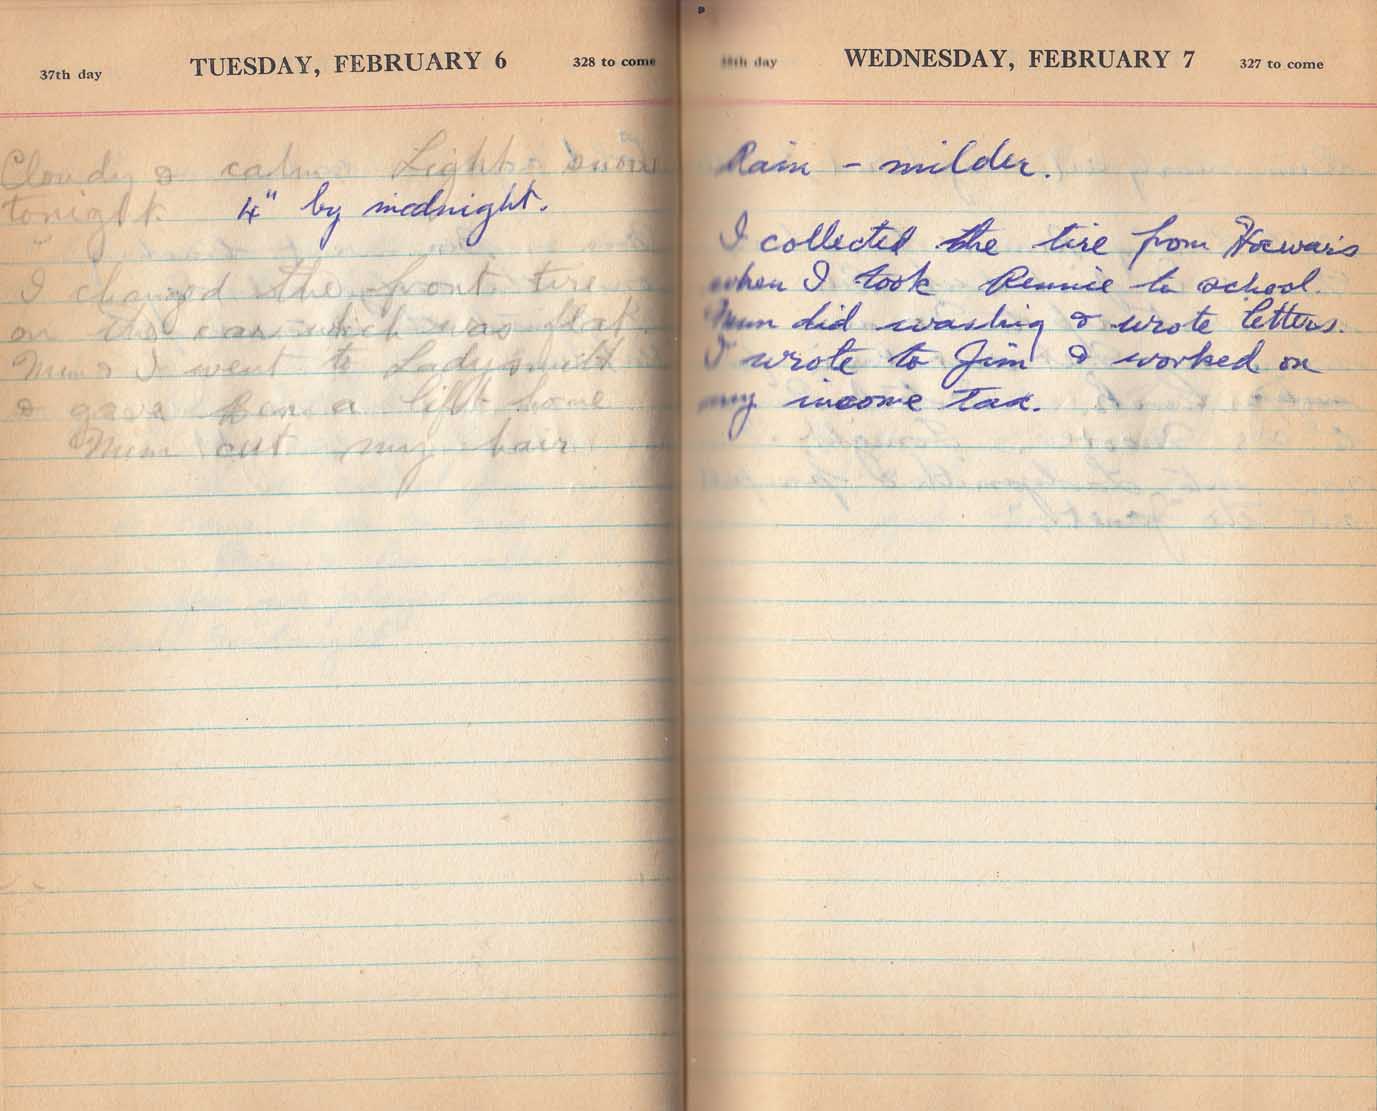 37th day TUESDAY, FEBRUARY 6 328 to come
Cloudy & calm. Light snow
tonight. 4" by midnight.
I changed the front tire
on the car which was flat.
Mum & I went to Ladysmith
& gave a lift home
Mum cut my hair
38th day WEDNESDAY, FEBRUARY 7 327 to come
Rain - milder.
I collected the tire from
when I took Rennie to school.
Mum did washing & wrote letters.
I wrote to Jim & worked on
my income tax.